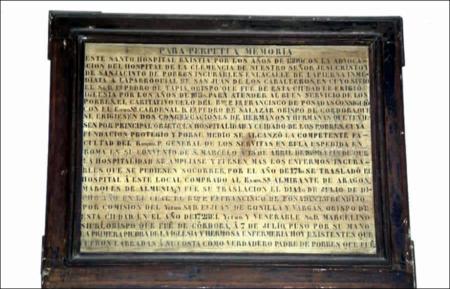 PARA PERPETUA MEMORIA
ESTE SANTO HOSPITAL EXISTIA POR LOS AÑOS DE CON LA ADVOCA
CION DEL HOSPITAL DE LA CLEMENCIA DE NUESTRO SEÑOR JESUCRISTO
DE SAN JACINTO DE POBRES INCURABLES EN LA CALLE DE INME
DIATO A LA PARROQUIAL DE SAN JUAN DE LOS CABALLEROS EN CUYO SITIO
EL PEDRO DE TAPIA OBISPO QUE FUE DE ESTA CIUDAD LE ERIGIO
IGLESIA POR LOS AÑOS DE PARA ATENDER AL BUEN SERVICIO DE LOS
POBRES EL CARITATIVO CELO DEL FRANCISCO DE POSADAS CONSIGUIO
CON EL CARDENAL PEDRO DE SALAZAR OBISPO DE CORDOBA QUE
SE ERIGIESEN DOS CONGREGACIONES DE HERMANOS Y HERMANAS QUE TUVIE
SEN POR PRINCIPAL OBJETO LA HOSPITALIDAD Y CUIDADO DE LOS POBRES
CONDUCTOS PROTEGIO Y POR SU MEDIO SE ALCANZÓ LA COMPETENTE FA
CULTAD DEL GENERAL DE LOS SERVITAS EN BULA ESPEDIDA EN
ROMA Y SU CONVENTO DE S. MARCELO ABRIL DE QUE
LA HOSPITALIDAD SE AMPLIASE Y FUESEN MAS LOS ENFERMOS INCURA
BLES QUE SE PUDIESEN SOCORRER, POR EL AÑO DE SE TRASLADÓ EL
HOSPITAL Á ESTE LOCAL COMPRADO AL ALMIRANTE DE ARAGON,
MARQUES DE Y FUE SU TRASLACION EL DIA DE JULIO DE DI
CHO AÑO EN EL CUAL EL FRANCISCO DE POSADAS BENDIJO,
POR COMISION DEL JUAN DE OBISPO DE
ESTA CIUDAD EN EL AÑO DE EL Y VENERABLE MARCELINO
SIURI, OBISPO QUE FUE DE CÓRDOBA, Á 7 DE JULIO, PUSO POR SU MANO
LA PRIMERA PIEDRA DE LA IGLESIA Y HERMOSA ENFERMERIA HOY EXISTENTES QUE
FUERON LABRADAS Á SU COSTA COMO VERDADERO PADRE DE POBRES QUE FUÉ